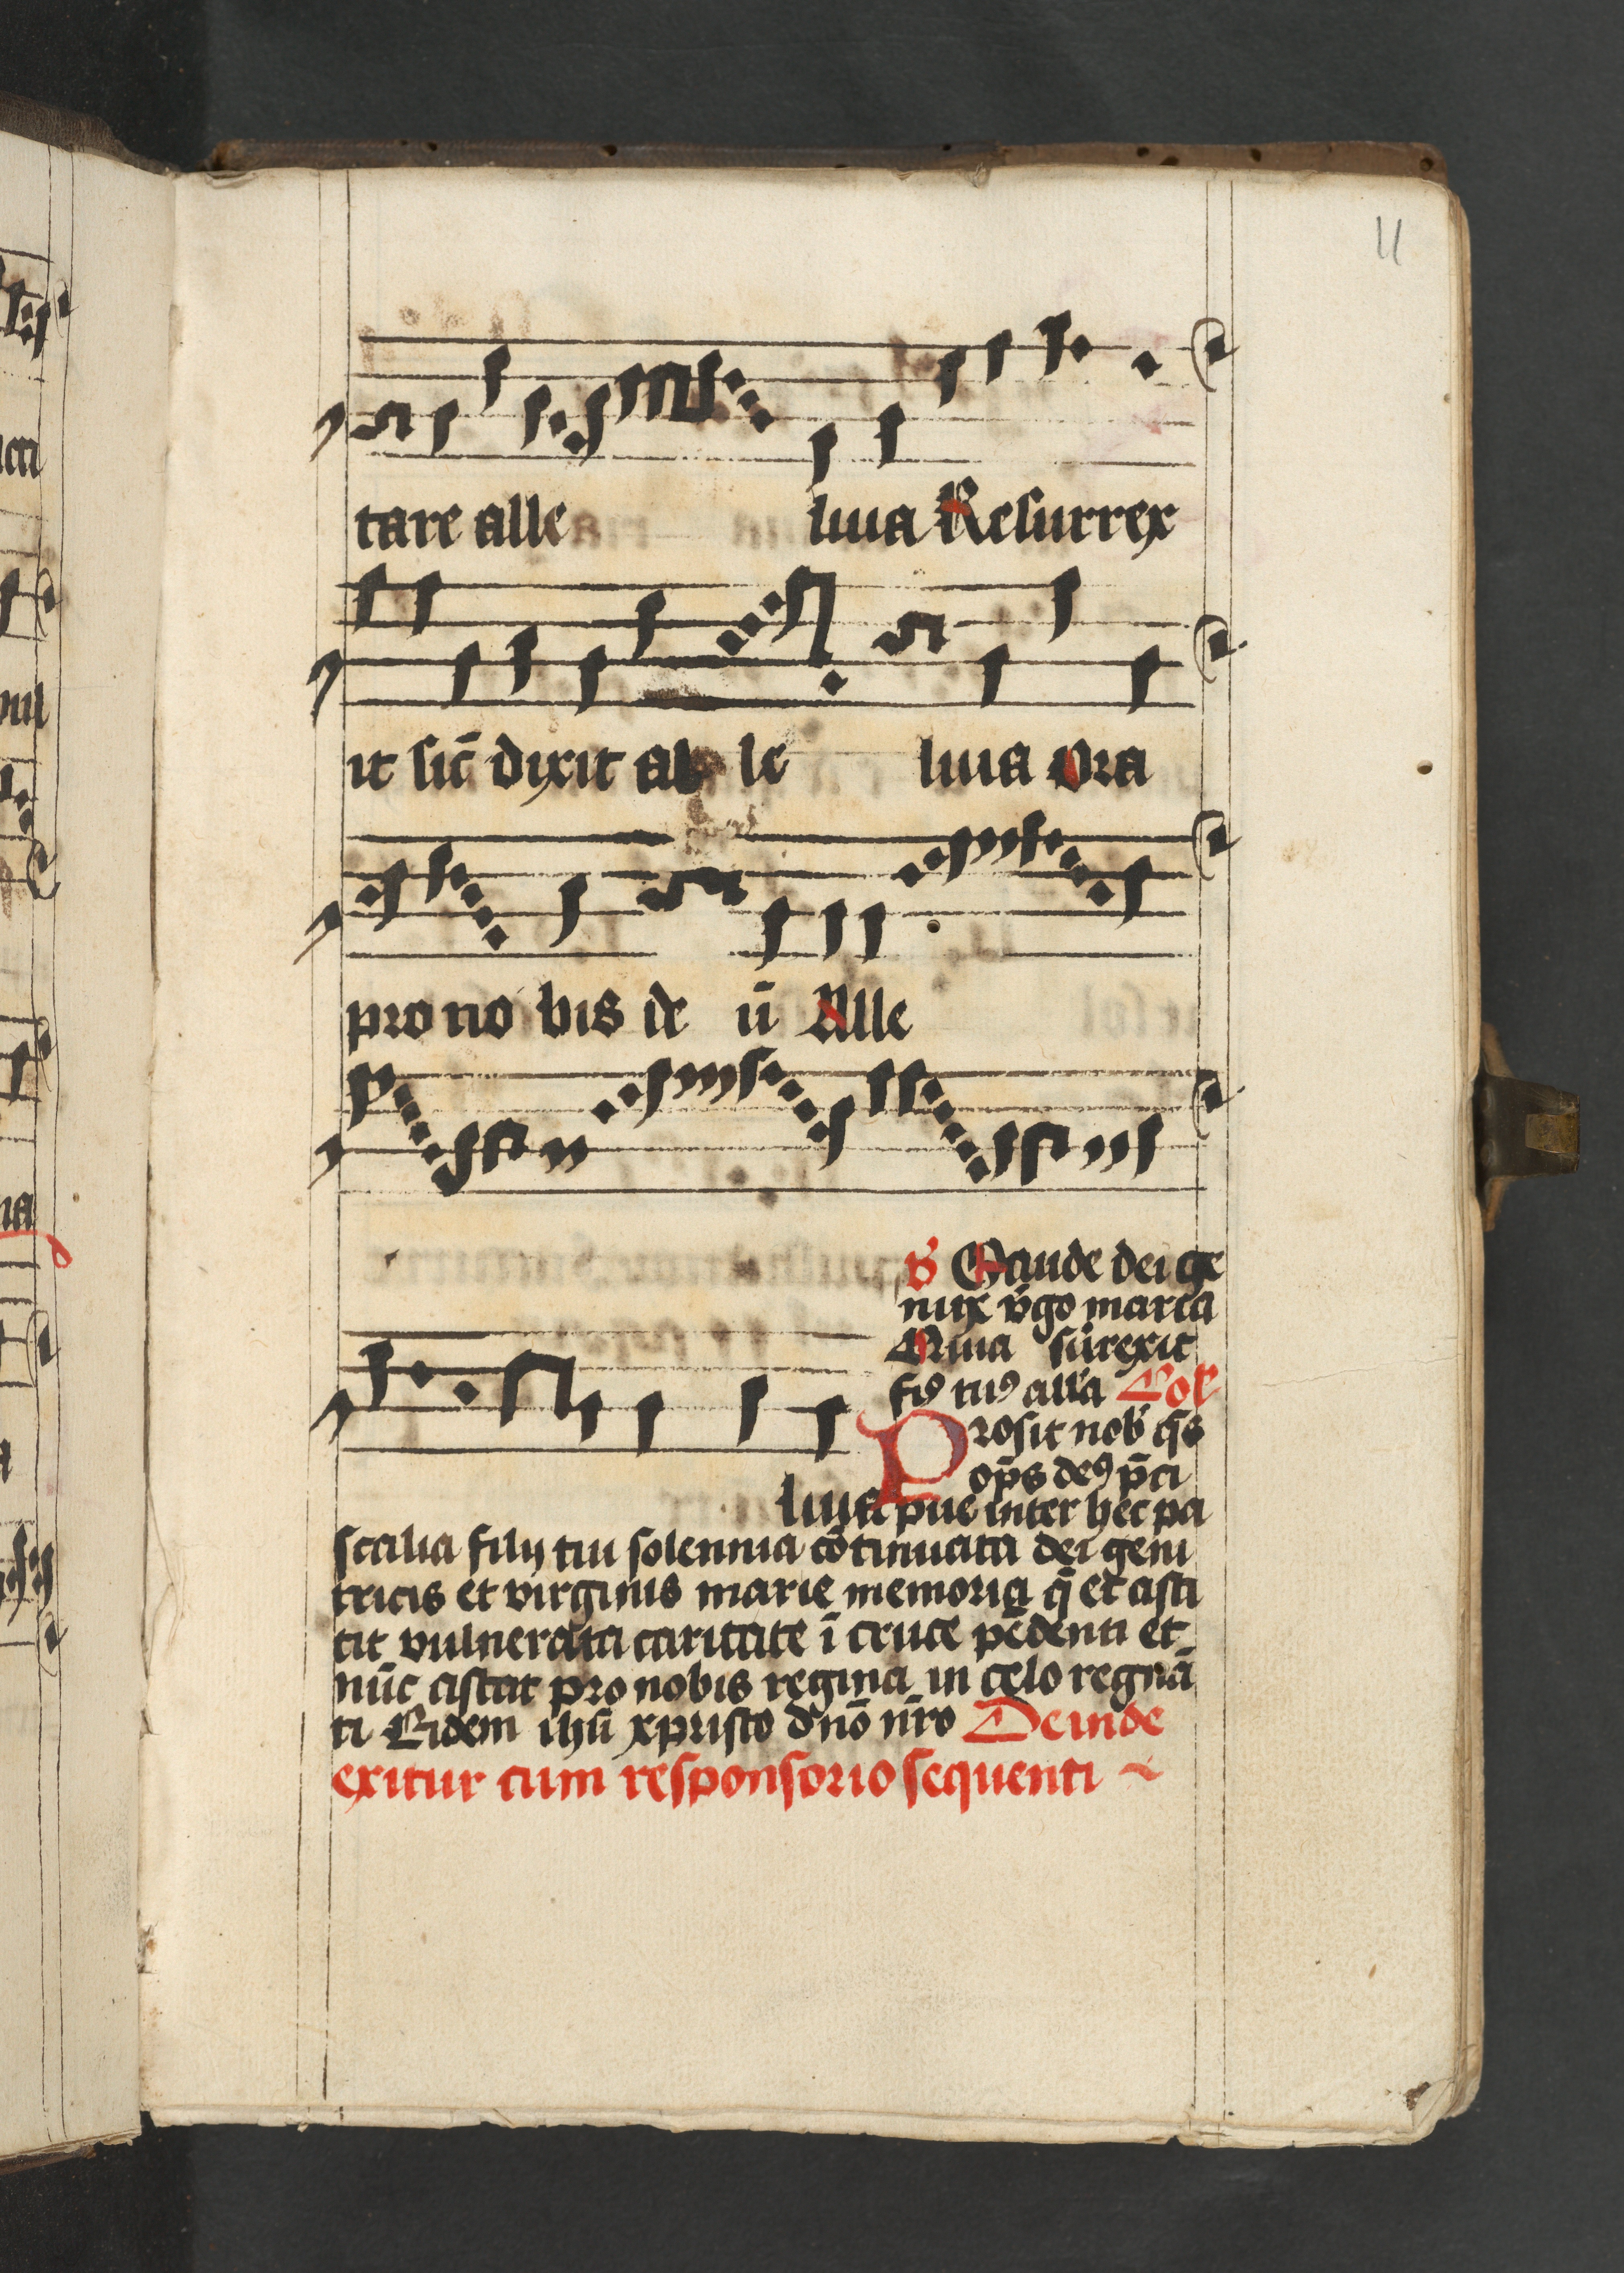 11
tare alle luia Resurrex
it sic̄ dixit al le luia ora
pro no bis de ū Alle
luia
V Gaude dei ge
nitrix v̄go maria
Quia surrexit
fiꝯ tuꝯ alla Coll
Prosit nob̄ q̄s
op̄s deꝯ p̄ci
pue inter hec pa
scalia filij tui solennia cōtinuata dei geni
tricis et virginis marie memoria q̄ et asti
tit vulnerata caritate ī cruce pēdenti et
nūc astat pro nobis regina in celo regnā
ti Eidem ihū xpristo dn̄o nr̄o Deinde
exitur cum responsorio sequenti